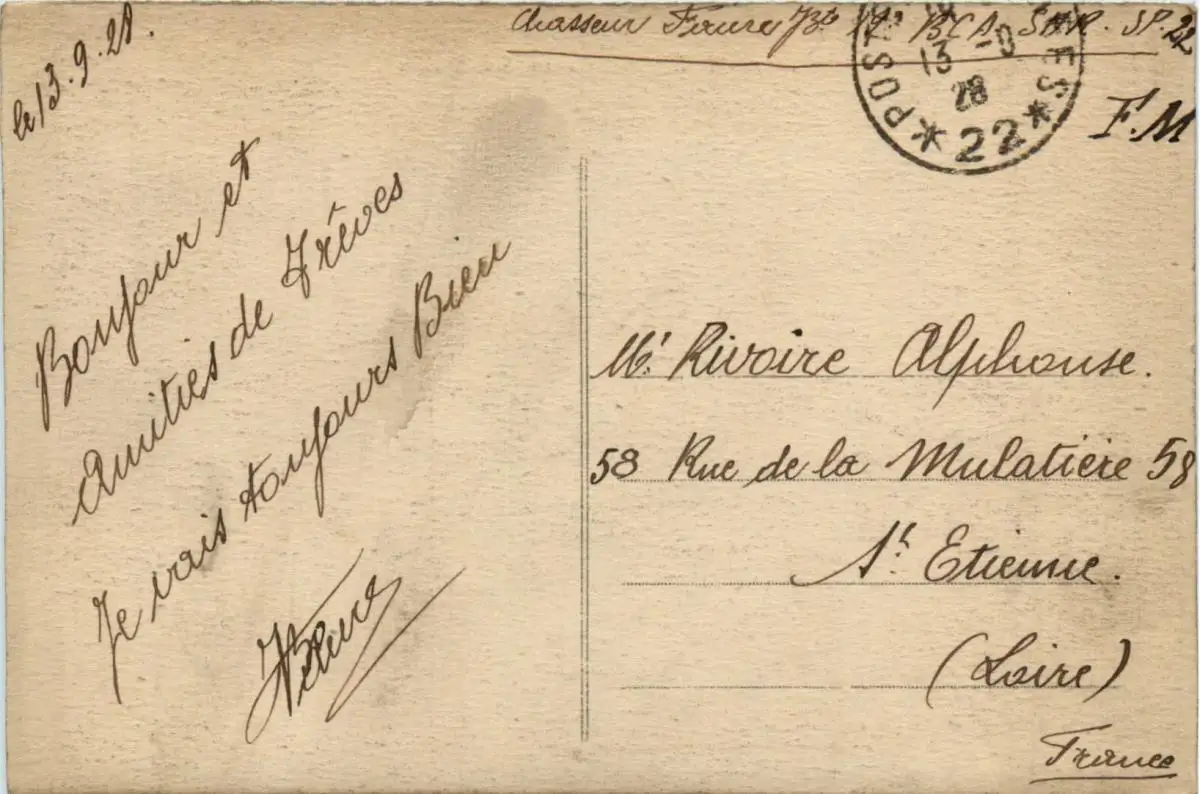 Chasseur Faure Jh 19e BCA. SHR. SP. 22
le 13.9.28.
POST ES
13 -9
28
* 22 *
F.M
Bonjour et
Amitiés de Trêves
Je vais toujours Bien
JFaure
Mr Rivoire Alphonse.
58 Rue de la Mulatière 58
St Etienne.
(Loire)
France